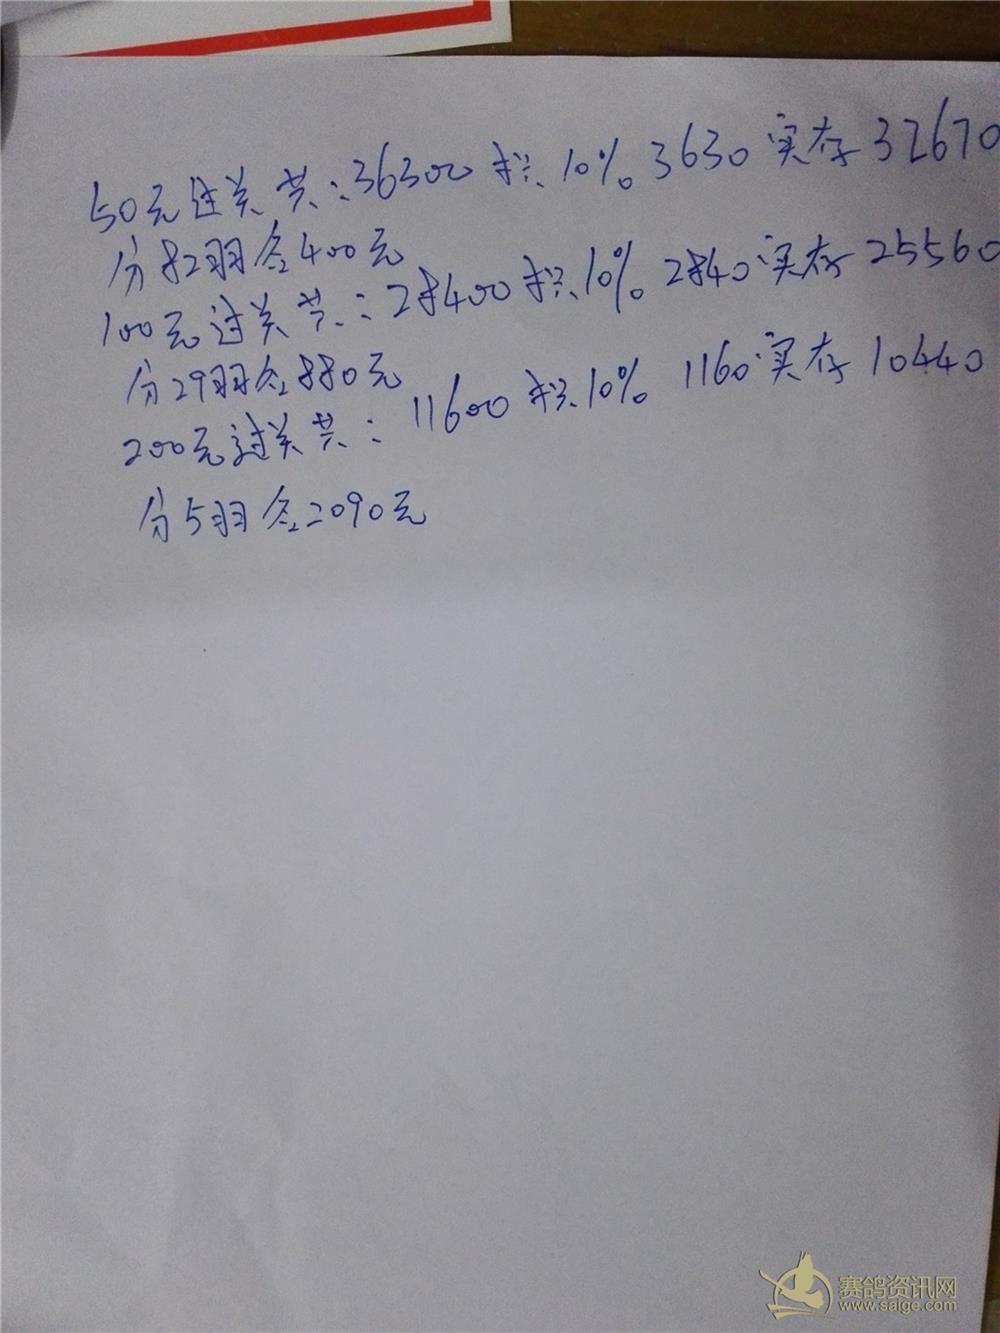 50元过关共:36300 扣10% 3630 实存32670
分82羽各400元
100元过关共:28400 扣10% 2840 实存25560
分29羽各880元
200元过关共:11600 扣10% 1160 实存10440
分5羽各2090元
赛鸽资讯网
www.saige.com